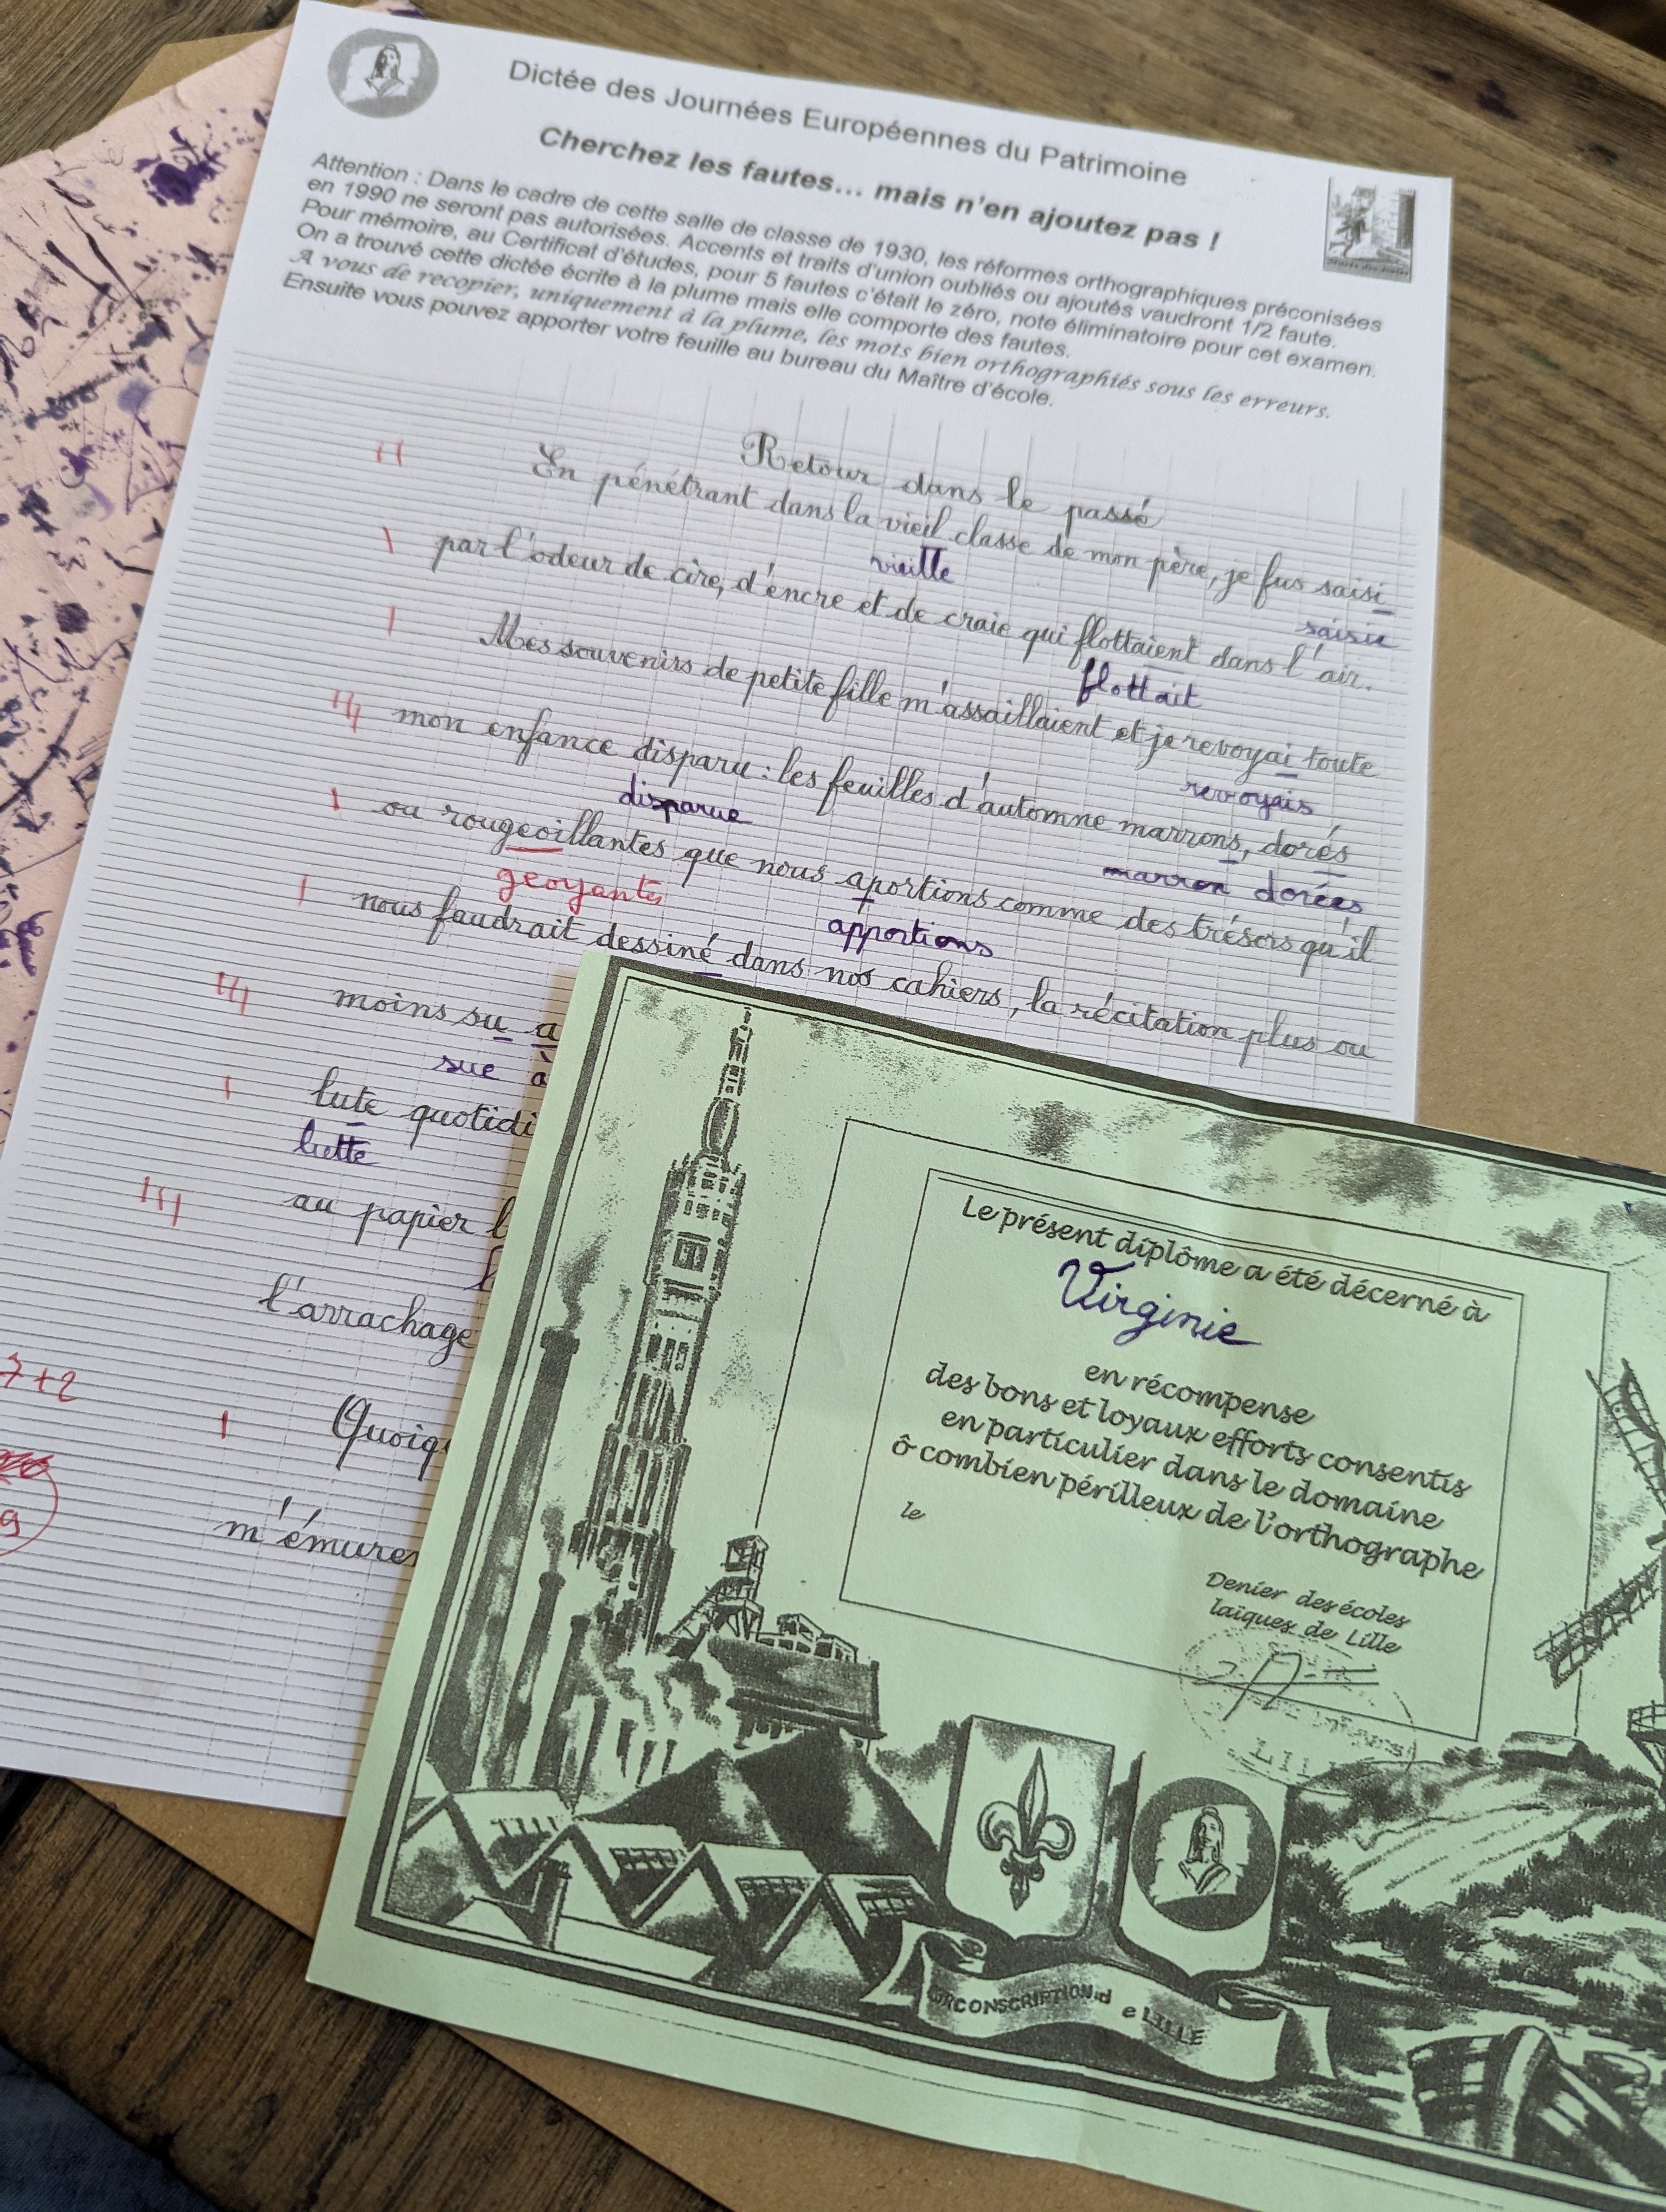 Dictée des Journées Européennes du Patrimoine
Cherchez les fautes... mais n'en ajoutez pas !
Attention : Dans le cadre de cette salle de classe de 1930, les réformes orthographiques préconisées
en 1990 ne seront pas autorisées. Accents et traits d'union oubliés ou ajoutés vaudront 1/2 faute.
Pour mémoire, au Certificat d'études, pour 5 fautes c'était le zéro, note éliminatoire pour cet examen.
On a trouvé cette dictée écrite à la plume mais elle comporte des fautes.
A vous de recopier, uniquement à la plume, les mots bien orthographiés sous les erreurs.
Ensuite vous pouvez apporter votre feuille au bureau du Maître d'école.
Retour dans le passé
En pénétrant dans la vieil classe de mon père, je fus saisi
vieille saisie
par l'odeur de cire, d'encre et de craie qui flottaient dans l'air.
flottait
Mes souvenirs de petite fille m'assaillaient et je revoyai toute
revoyais
mon enfance disparu : les feuilles d'automne marrons, dorés
disparue marron dorées
ou rougeoillantes que nous aportions comme des trésors qu'il
geoyantes apportions
nous faudrait dessiné dans nos cahiers, la récitation plus ou
moins su a
sue à
lute quotidi
lutte
au papier
l'arrachage
7+2
Quoiq
m'émures
9
Le présent diplôme a été décerné à
Virginie
en récompense
des bons et loyaux efforts consentis
en particulier dans le domaine
ô combien périlleux de l'orthographe
le
Denier des écoles
laïques de Lille
CIRCONSCRIPTION d e LILLE